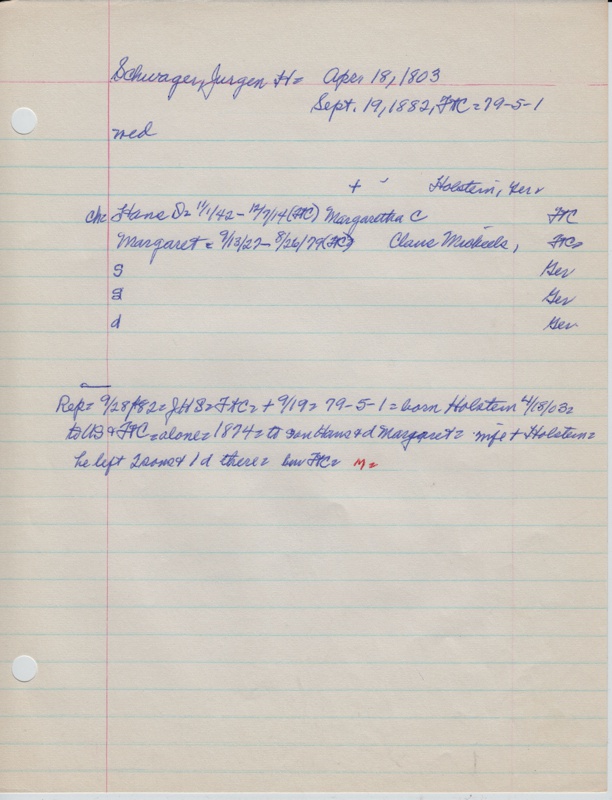 Schwager, Jurgen H= Apr. 18, 1803
Sept. 19, 1882, FTC = 79-5-1
wed
+ - Holstein, Ger.
ch= Hans D= 11/1/42 - 12/7/14 (FTC) Margaretha C FTC
Margaret = 9/13/27 - 8/26/79 (FTC) Claus Michiels, FTC=
s Ger
s Ger
d Ger
Rep= 9/28/82 = JHS = FTC = + 9/19 = 79-5-1 = born Holstein 4/18/03 =
to US & FTC = alone = 1874 = to son Hans & d Margaret = wife + Holstein =
he left 2 sons & 1 d there = bur FTC = M=